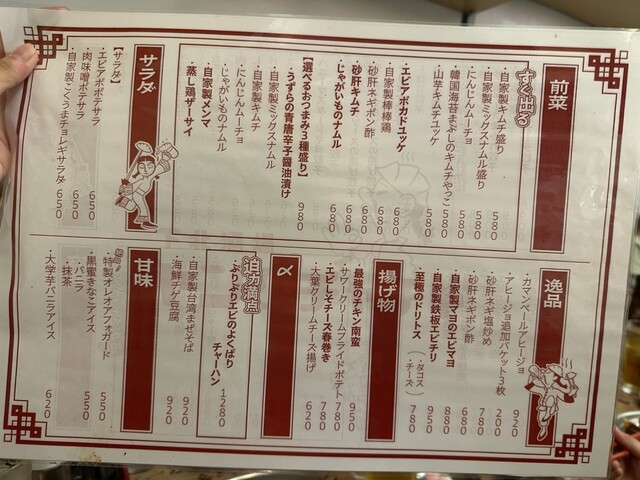 前菜
すぐ出る
・自家製キムチ盛り 580
・自家製ミックスナムル盛り 580
・にんじんムーチョ 580
・韓国海苔まぶしのキムチやっこ 580
・山芋キムチユッケ 580
・エビアボカドユッケ 680
・自家製棒棒鶏 680
・砂肝ネギポン酢 680
・砂肝キムチ 680
・じゃがいものナムル 680
【選べるおつまみ3種盛り】 980
・うずらの青唐辛子醤油漬け
・自家製ミックスナムル
・自家製キムチ
・にんじんムーチョ
・じゃがいものナムル
・自家製メンマ
・蒸し鶏ザーサイ
サラダ
【サラダ】
・エビアボポテサラ 650
・肉味噌ポテサラ 650
・自家製こくうまチョレギサラダ 650
逸品
・カマンベールアヒージョ 920
・アヒージョ追加バケット3枚 200
・砂肝ネギ塩炒め 780
・砂肝ネギポン酢 680
・自家製マヨのエビマヨ 880
・自家製鉄板エビチリ 950
・至極のドリトス (・タコス ・チーズ) 780
揚げ物
・最強のチキン南蛮 950
・サワークリームフライドポテト 780
・エビしそチーズ春巻き 780
・大葉クリームチーズ揚げ 620
〆
迫力満点
・ぷりぷりエビのよくばりチャーハン 1280
・自家製台湾まぜそば 920
・海鮮チゲ豆腐 920
甘味
・特製オレオアフォガード 550
・黒蜜きなこアイス 550
・バニラ
・抹茶
・大学芋バニラアイス 620